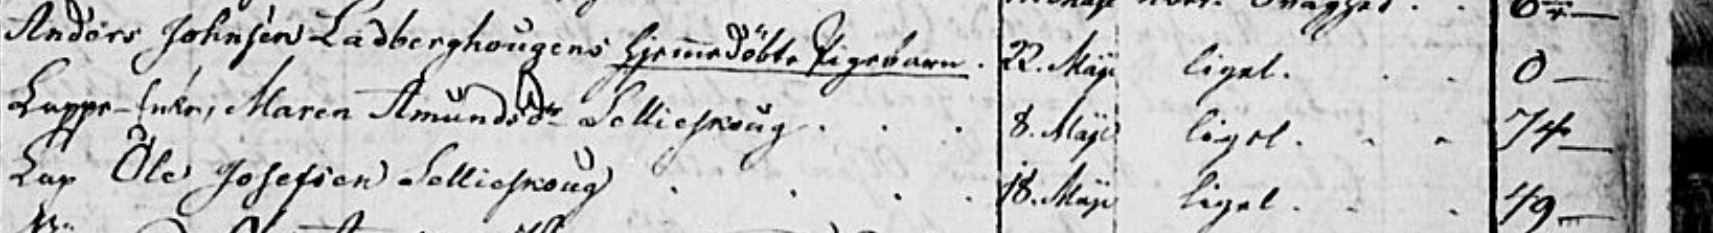 Anders Johnsen Ladberghougens hjemmedöbte Pigebarn. 22. Maji ligel. 0 —
Lappe-Enke, Maren Amundsdr Sellieskoug . . . 8. Maji ligel. 74 —
Lap Ole Josefsen Sellieskoug . . . 18. Maji ligel. 49 —